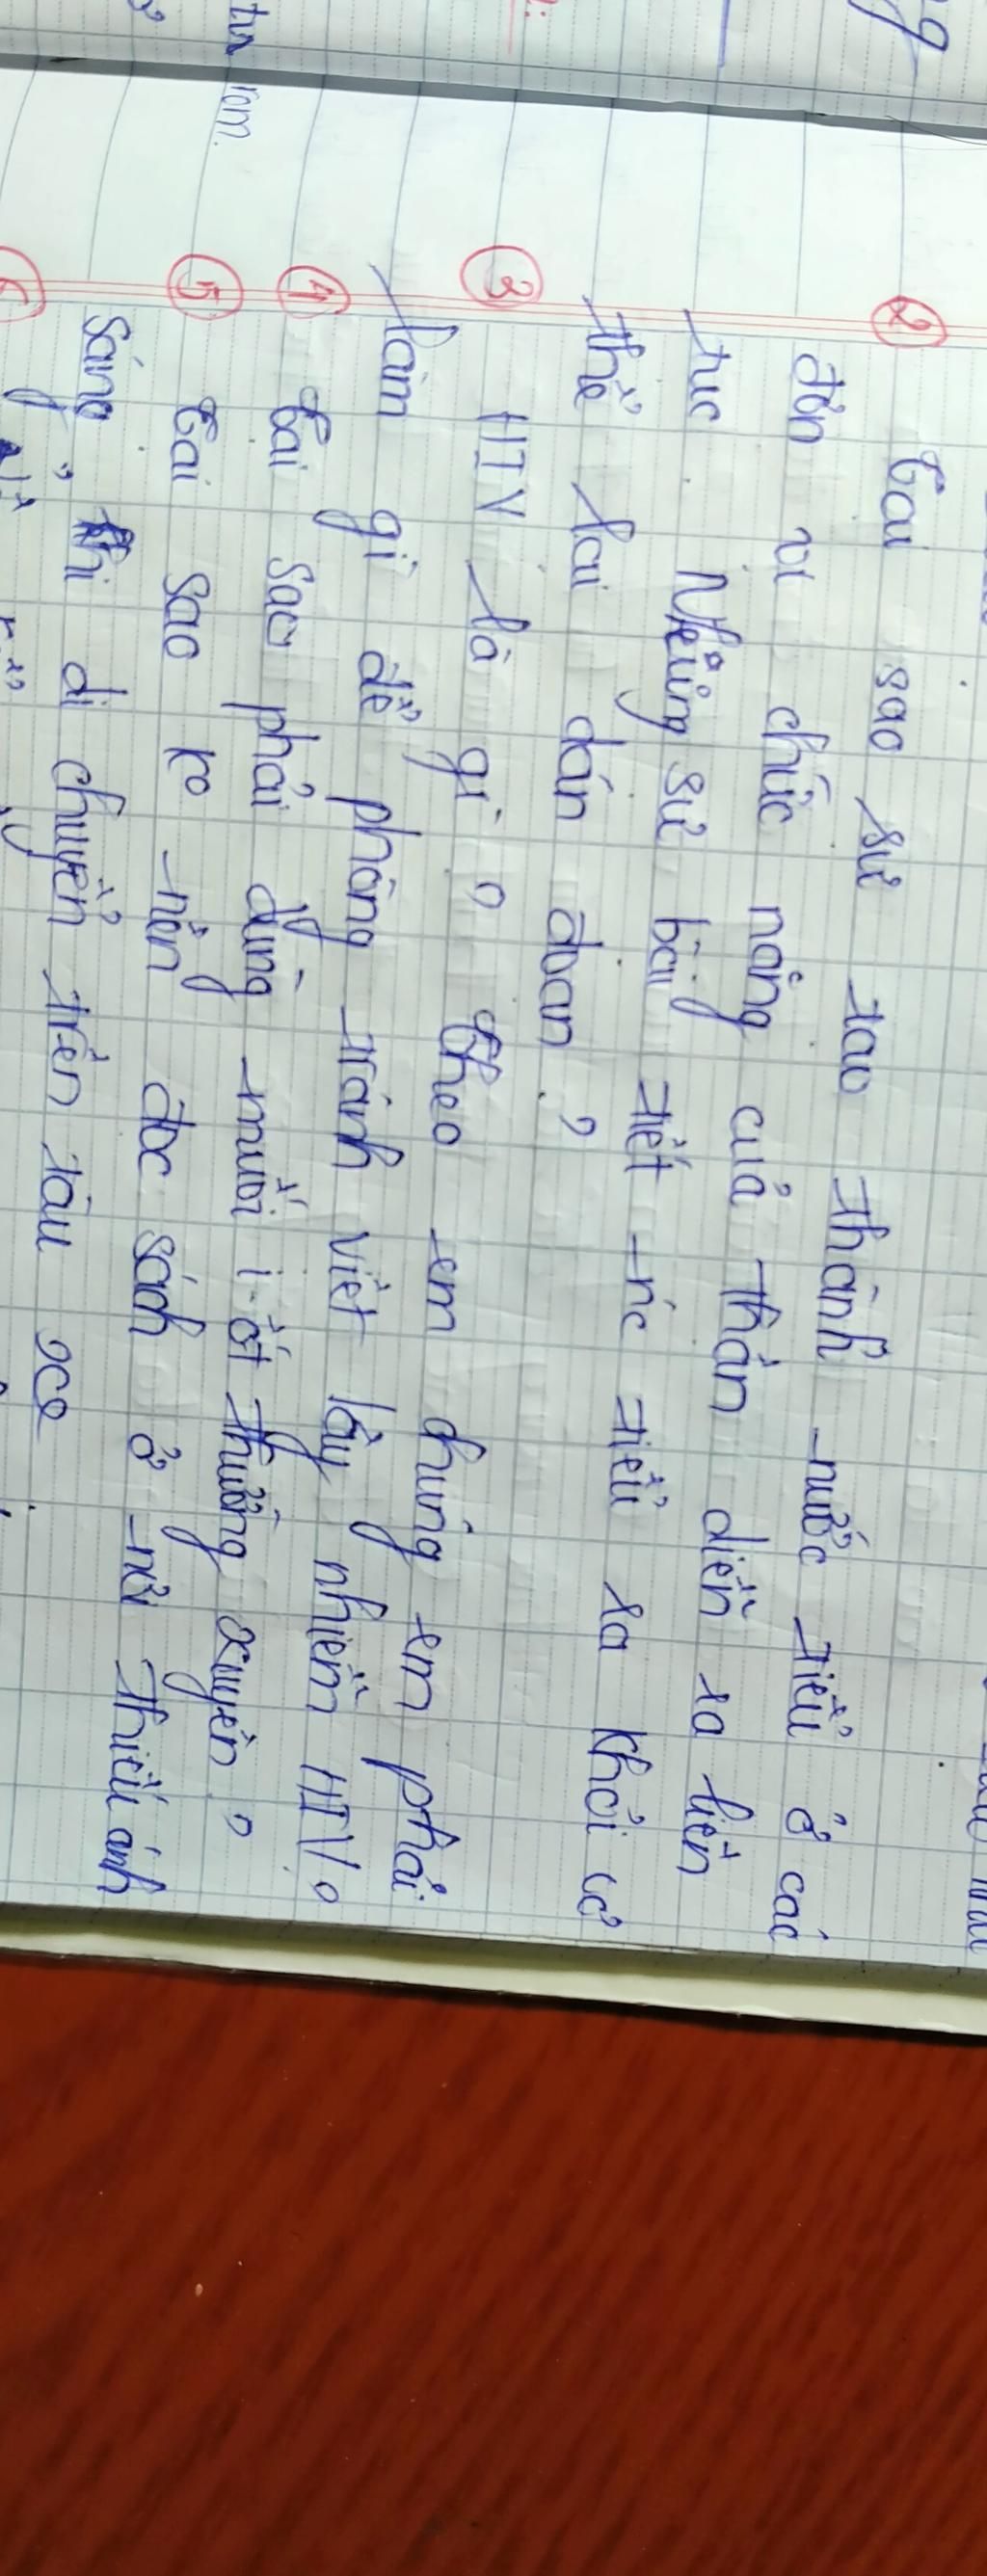 ② Tại sao sự tạo thành nước tiểu ở các
đơn vị chức năng của thận diễn ra liên
tục. Nhưng sự bài tiết nc tiểu ra khỏi cơ
thể lại dán đoạn ?
③ HIV là gì ? Theo em chúng em phải
làm gì để phòng tránh việt lây nhiễm HIV?
④ Tại sao phải dùng muối i-ốt thường xuyên ?
⑤ Tại sao ko nên đọc sách ở nơi thiếu ánh
sáng, khi di chuyển trên tàu xe